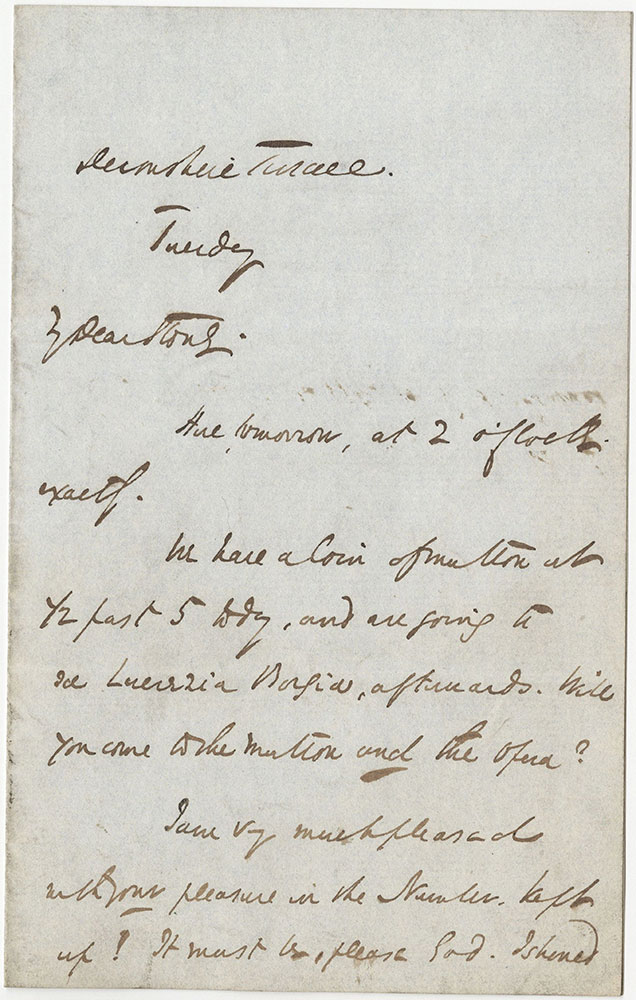 Devonshire Terrace.
Tuesday
My Dear Stone.
Here, tomorrow, at 2 o'Clock
exactly.
We have a loin of mutton at
1/2 past 5 today, and are going to
see Lucrezia Borgia, afterwards. Will
you come to the mutton and the Opera?
I am very much pleased
with your pleasure in the Number. Kept
up! It must be, please God. I should